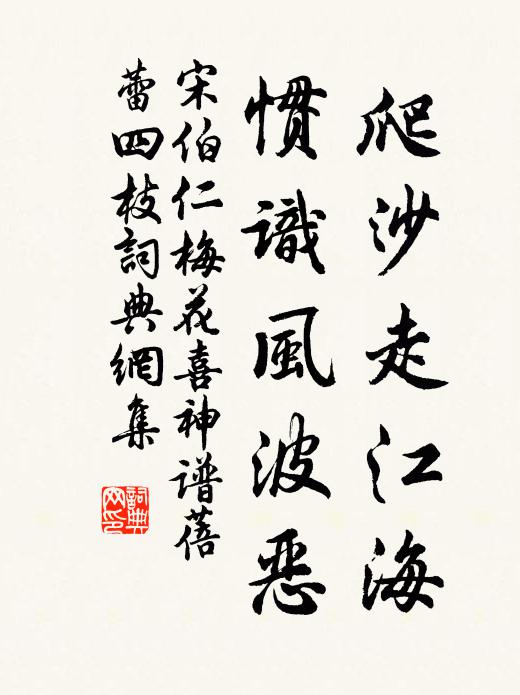 爬沙走江海
慣識風波惡
宋伯仁梅花喜神譜蓓
蕾四枝詞典網集
詞典网印